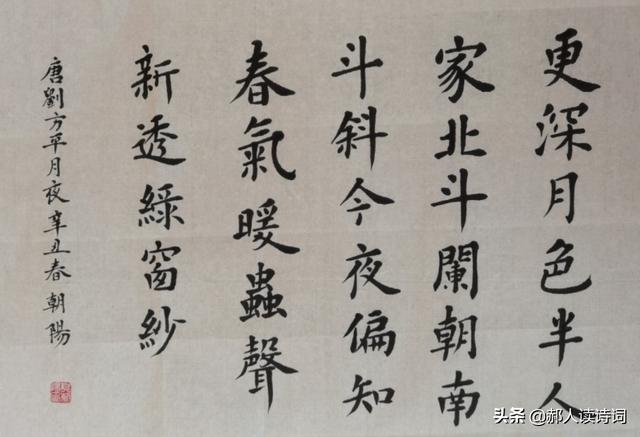 更深月色半人
家北斗闌朝南
斗斜今夜偏知
春氣暖蟲聲
新透綠窗紗
唐劉方平月夜辛丑春朝陽
头条 @郝人读诗词